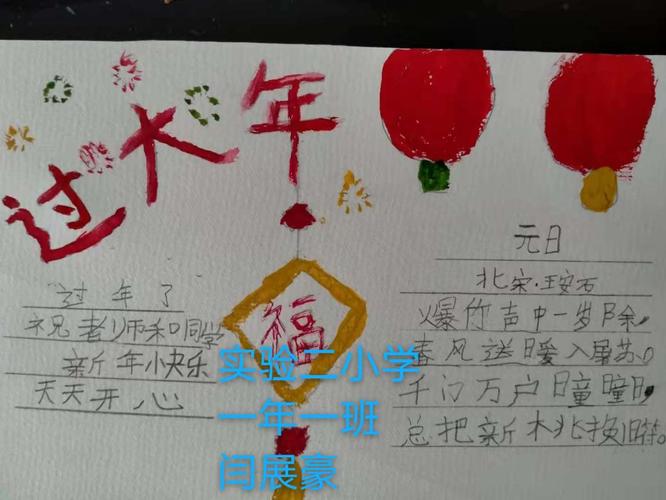 过大年
过年了
祝老师和同学
新年快乐
天天开心
福
元日
北宋·王安石
爆竹声中一岁除,
春风送暖入屠苏。
千门万户曈曈日,
总把新桃换旧符。
实验二小学
一年一班
闫展豪